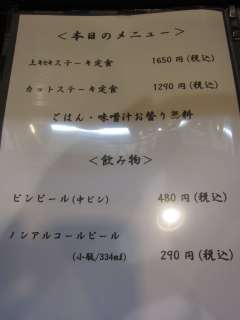 ＜本日のメニュー＞
上ｷｾｷステーキ定食 1650円(税込)
カットステーキ定食 1290円(税込)
ごはん・味噌汁お替り無料
＜飲み物＞
ビンビール(中ビン) 480円(税込)
ノンアルコールビール
(小瓶/334ml) 290円(税込)